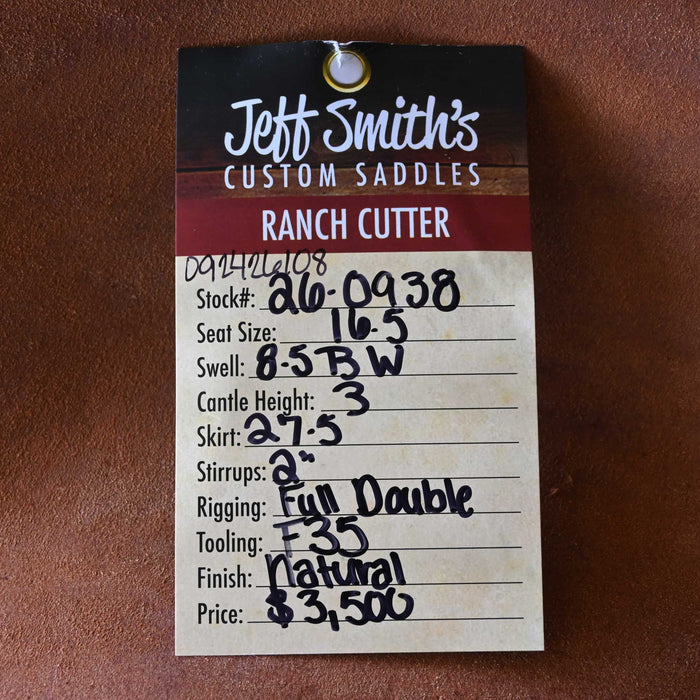 Jeff Smith's
CUSTOM SADDLES
RANCH CUTTER
092426108
Stock#: 26-0938
Seat Size: 16.5
Swell: 8.5 BW
Cantle Height: 3
Skirt: 27.5
Stirrups: 2"
Rigging: Full Double
Tooling: F35
Finish: Natural
Price: $3,500